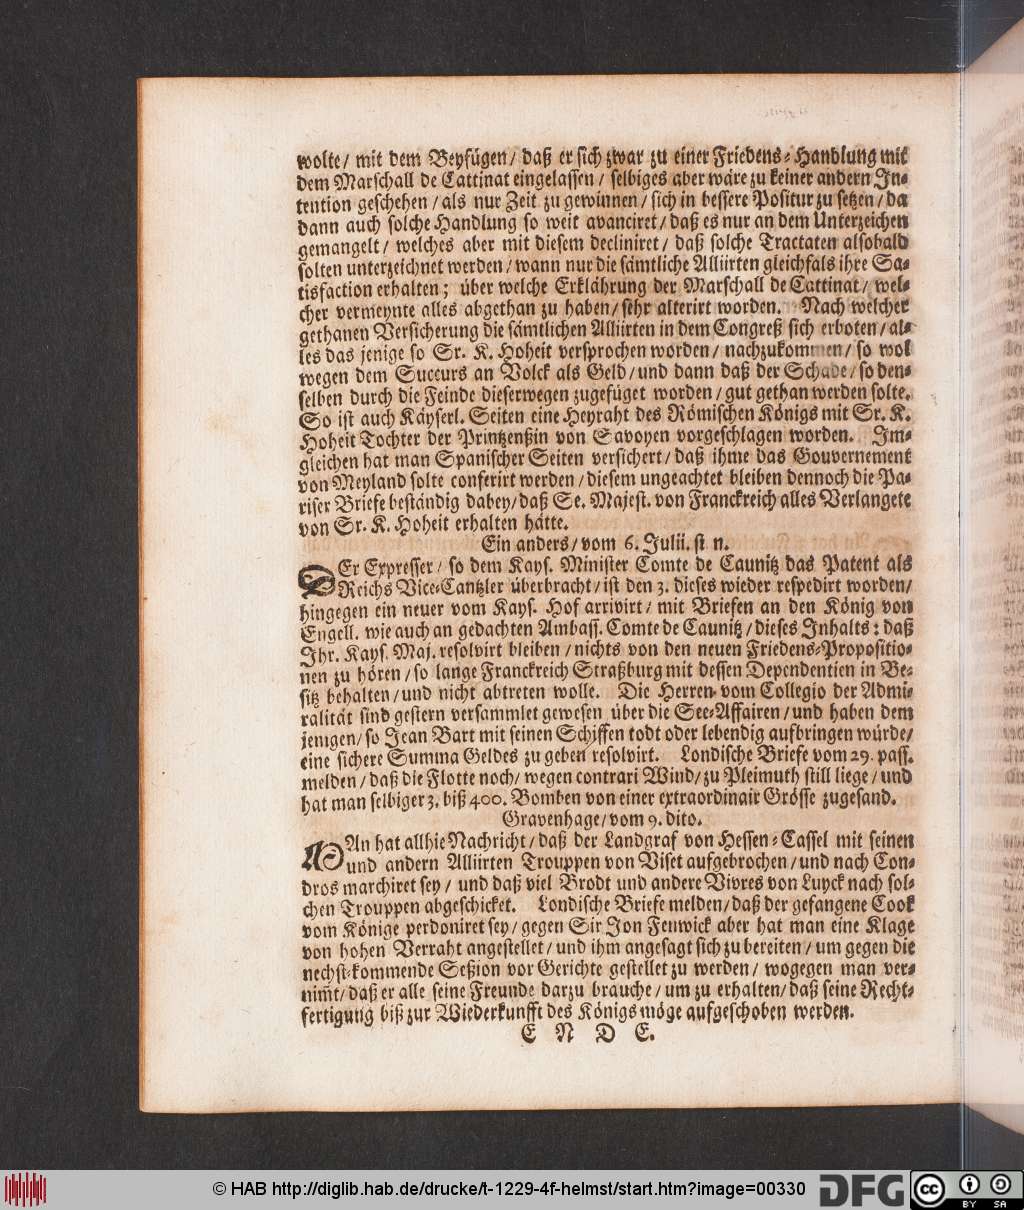 wolte/ mit dem Beyfügen/ daß er sich zwar zu einer Friedens-Handlung mit
dem Marschall de Cattinat eingelassen/ selbiges aber wäre zu keiner andern In-
tention geschehen/als nur Zeit zu gewinnen/sich in bessere Positur zu setzen/da
dann auch solche Handlung so weit avanciret/daß es nur an dem Unterzeichen
gemangelt/ welches aber mit diesem decliniret/ daß solche Tractaten alsobald
solten unterzeichnet werden/wann nur die sämtliche Alliirten gleichfals ihre Sa-
tisfaction erhalten; über welche Erklährung der Marschall de Cattinat/ wel-
cher vermeynte alles abgethan zu haben/sehr alterirt worden. Nach welcher
gethanen Versicherung die sämtlichen Alliirten in dem Congreß sich erboten/al-
les das jenige so Sr. K. Hoheit versprochen worden/ nachzukommen/ so wol
wegen dem Succurs an Volck als Geld/und dann daß der Schade/so den-
selben durch die Feinde dieserwegen zugefüget worden/gut gethan werden solte.
So ist auch Käyserl. Seiten eine Heyraht des Römischen Königs mit Sr. K.
Hoheit Tochter der Printzenßin von Savoyen vorgeschlagen worden. Im-
gleichen hat man Spanischer Seiten versichert/daß ihme das Gouvernement
von Meyland solte conferirt werden/diesem ungeachtet bleiben dennoch die Pa-
riser Briefe beständig dabey/daß Se. Majest. von Franckreich alles Verlangete
von Sr. K. Hoheit erhalten hätte.
Ein anders/vom 6. Julii. st n.
DEr Expresser/ so dem Kays. Minister Comte de Caunitz das Patent als
Reichs Vice-Cantzler überbracht/ist den 3. dieses wieder respedirt worden/
hingegen ein neuer vom Kays. Hof arrivirt/ mit Briefen an den König von
Engell. wie auch an gedachten Ambass. Comte de Caunitz/dieses Inhalts: daß
Ihr. Kays. Maj. resolvirt bleiben/nichts von den neuen Friedens-Propositio-
nen zu hören/so lange Franckreich Straßburg mit dessen Dependentien in Be-
sitz behalten/und nicht abtreten wolle. Die Herren vom Collegio der Admi-
ralität sind gestern versammlet gewesen über die See-Affairen/und haben dem
jenigen/so Jean Bart mit seinen Schiffen todt oder lebendig aufbringen würde/
eine sichere Summa Geldes zu geben resolvirt. Londische Briefe vom 29. pass.
melden/daß die Flotte noch/wegen contrari Wind/zu Pleimuth still liege/und
hat man selbiger 3. biß 400. Bomben von einer extraordinair Grösse zugesand.
Gravenhage/vom 9. dito.
MAn hat allhie Nachricht/daß der Landgraf von Hessen-Cassel mit seinen
und andern Alliirten Trouppen von Viset aufgebrochen/und nach Con-
dros marchiret sey/ und daß viel Brodt und andere Vivres von Luyck nach sol-
chen Trouppen abgeschicket. Londische Briefe melden/daß der gefangene Cook
vom Könige perdoniret sey/gegen Sir Jon Fenwick aber hat man eine Klage
von hohen Verraht angestellet/und ihm angesagt sich zu bereiten/um gegen die
nechst-kommende Seßion vor Gerichte gestellet zu werden/ wogegen man ver-
nim̃t/daß er alle seine Freunde darzu brauche/um zu erhalten/daß seine Recht-
fertigung biß zur Wiederkunfft des Königs möge aufgeschoben werden.
E N D E.
© HAB http://diglib.hab.de/drucke/t-1229-4f-helmst/start.htm?image=00330
DFG
cc BY SA